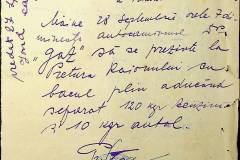 Mâine 28 septembrie orele 7 di-
mineața autocamionul
"gaz" să se prezinte la
Pretura Raionului cu
bacul plin aducând
separat 120 kgr benzină
și 10 kgr autol.